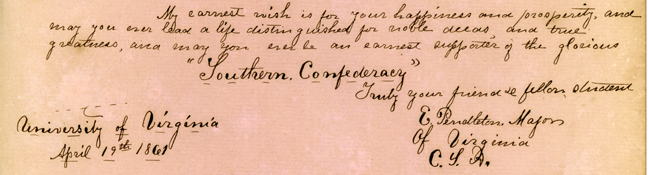 My earnest wish is for your happiness and prosperity, and
may you ever lead a life distinguished for noble deeds, and true
greatness, and may you ever be an earnest supporter of the glorious
"Southern. Confederacy"
Truly your friend & fellow student
E. Pendleton Major
Of Virginia
C. S. A.
University of Virginia
April 19th 1861